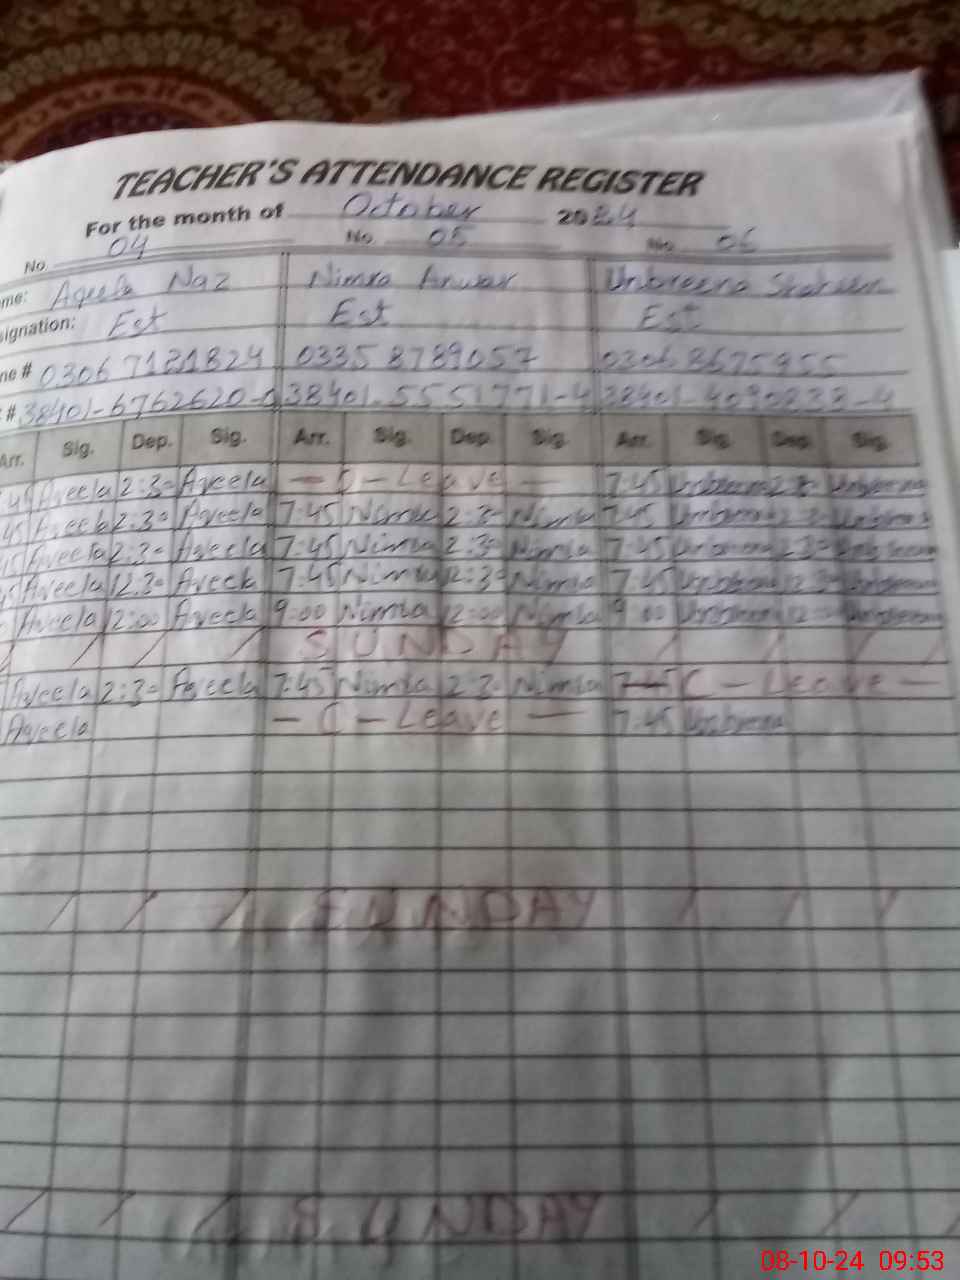 TEACHER'S ATTENDANCE REGISTER
For the month of October 2024
No 04 No 05 No 06
me: Aqeela Naz Nimra Anwar Unbreena Shaheen
signation: Est Est Est
ne # 0306 7181824 0335 8789057 0306 8675955
# 38401-6762620-0 38401-5551771-4 38401-4090838-4
Arr. Sig. Dep. Sig. Arr. Sig. Dep. Sig. Arr. Sig. Dep. Sig.
45 Aqeela 2:30 Aqeela — C - Leave — 7:45 Unbreena 2:30 Unbreena
45 Aqeela 2:30 Aqeela 7:45 Nimra 2:30 Nimra 7:45 Unbreena 2:30 Unbreena
45 Aqeela 2:30 Aqeela 7:45 Nimra 2:30 Nimra 7:45 Unbreena 2:30 Unbreena
45 Aqeela 12:30 Aqeela 7:45 Nimra 12:30 Nimra 7:45 Unbreena 12:30 Unbreena
Aqeela 12:00 Aqeela 9:00 Nimra 12:00 Nimra 9:00 Unbreena 12: Unbreena
SUNDAY
Aqeela 2:30 Aqeela 7:45 Nimra 2:30 Nimra 7:45 C - Leave —
Aqeela — C - Leave — 7:45 Unbreena
SUNDAY
SUNDAY
08-10-24 09:53